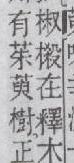 椒樧在釋木
有茱萸樹正